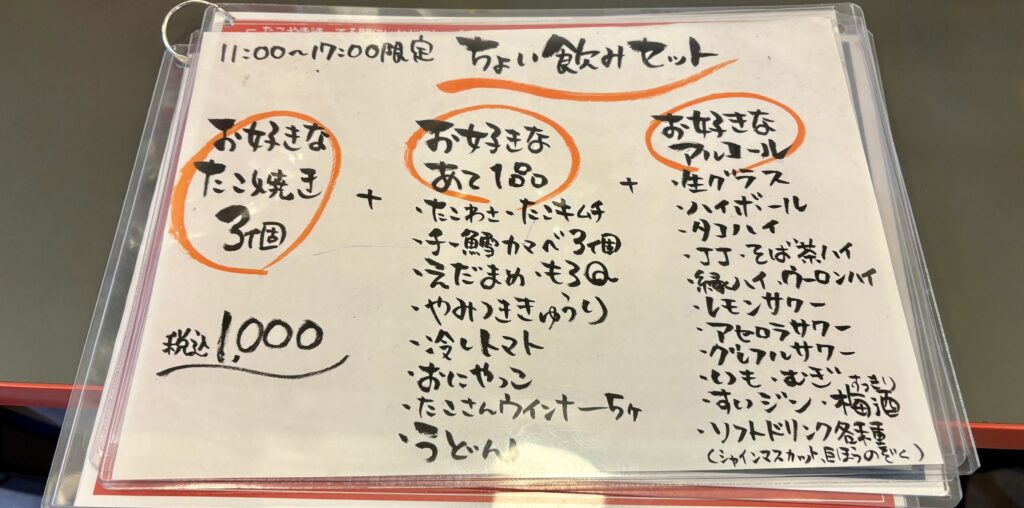 11:00〜17:00限定 ちょい飲みセット
お好きな
たこ焼き
3個
税込1,000
+
お好きな
あて1品
・たこわさ・たこキムチ
・チー鱈カマベ3個
・えだまめ・もろQ
・やみつききゅうり
・冷しトマト
・おにやっこ
・たこさんウインナー5ヶ
・うどん
+
お好きな
アルコール
・生グラス
・ハイボール
・タコハイ
・JJ・そば茶ハイ
・緑ハイ・ウーロンハイ
・レモンサワー
・アセロラサワー
・グレフルサワー
・いも・むぎ
・すいジン・さっきり梅酒
・ソフトドリンク各種
(シャインマスカット、巨ほうのぞく)